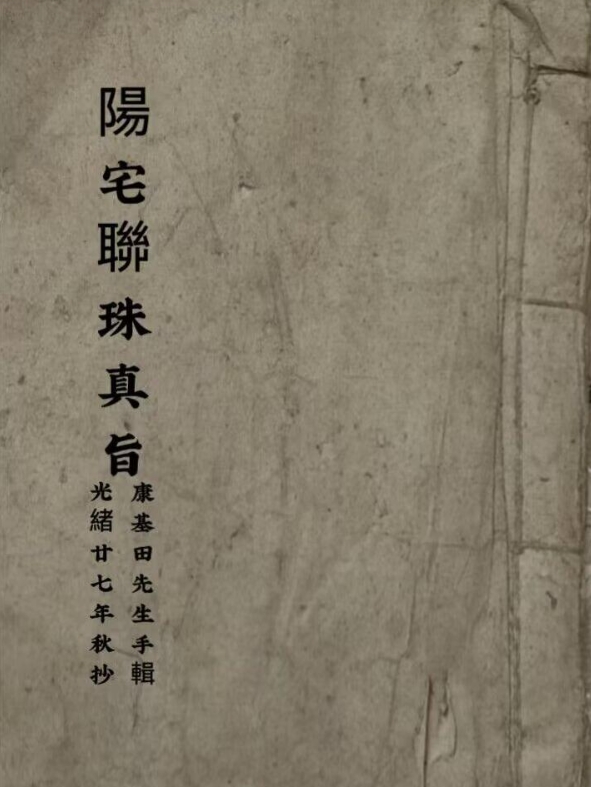 陽宅聯珠真旨
康基田先生手輯
光緒廿七年秋抄